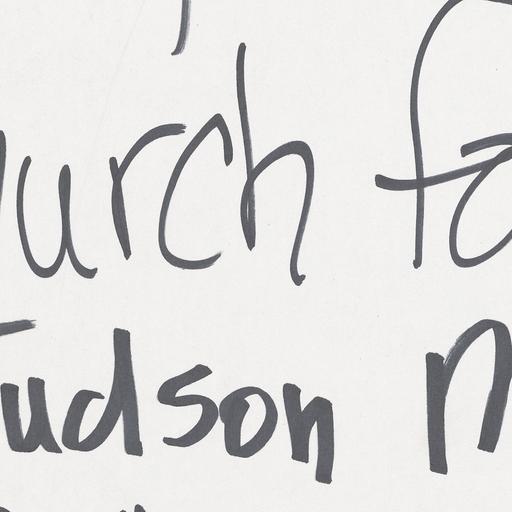 urch fa
Judson M